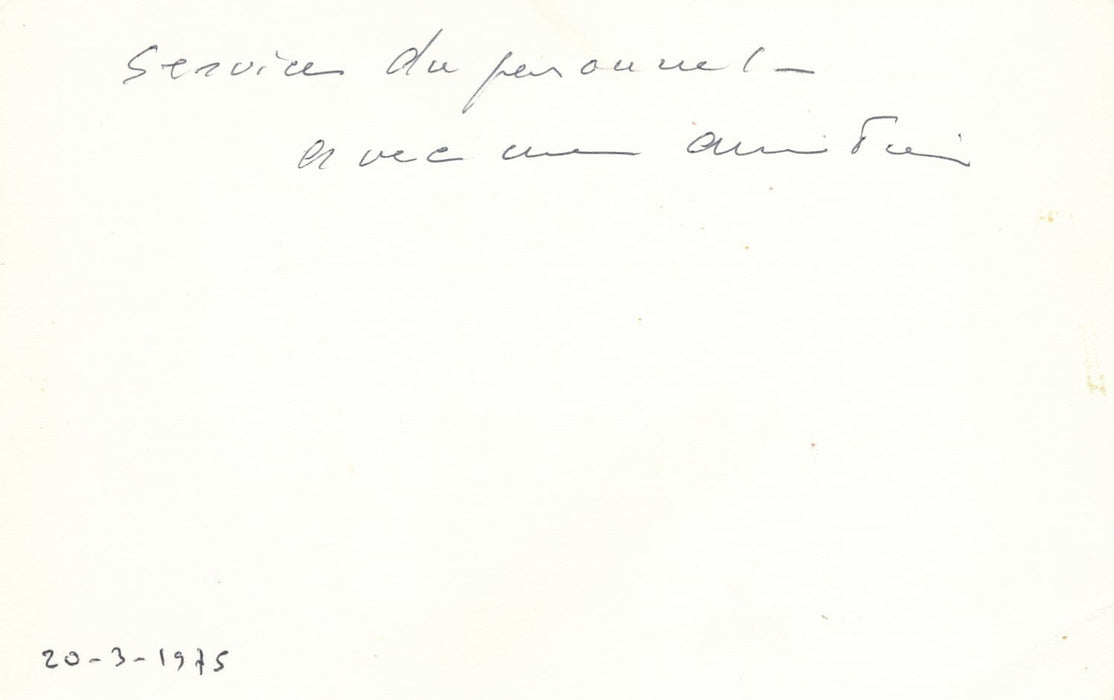 service du personnel -
avec mon amitié
20-3-1975